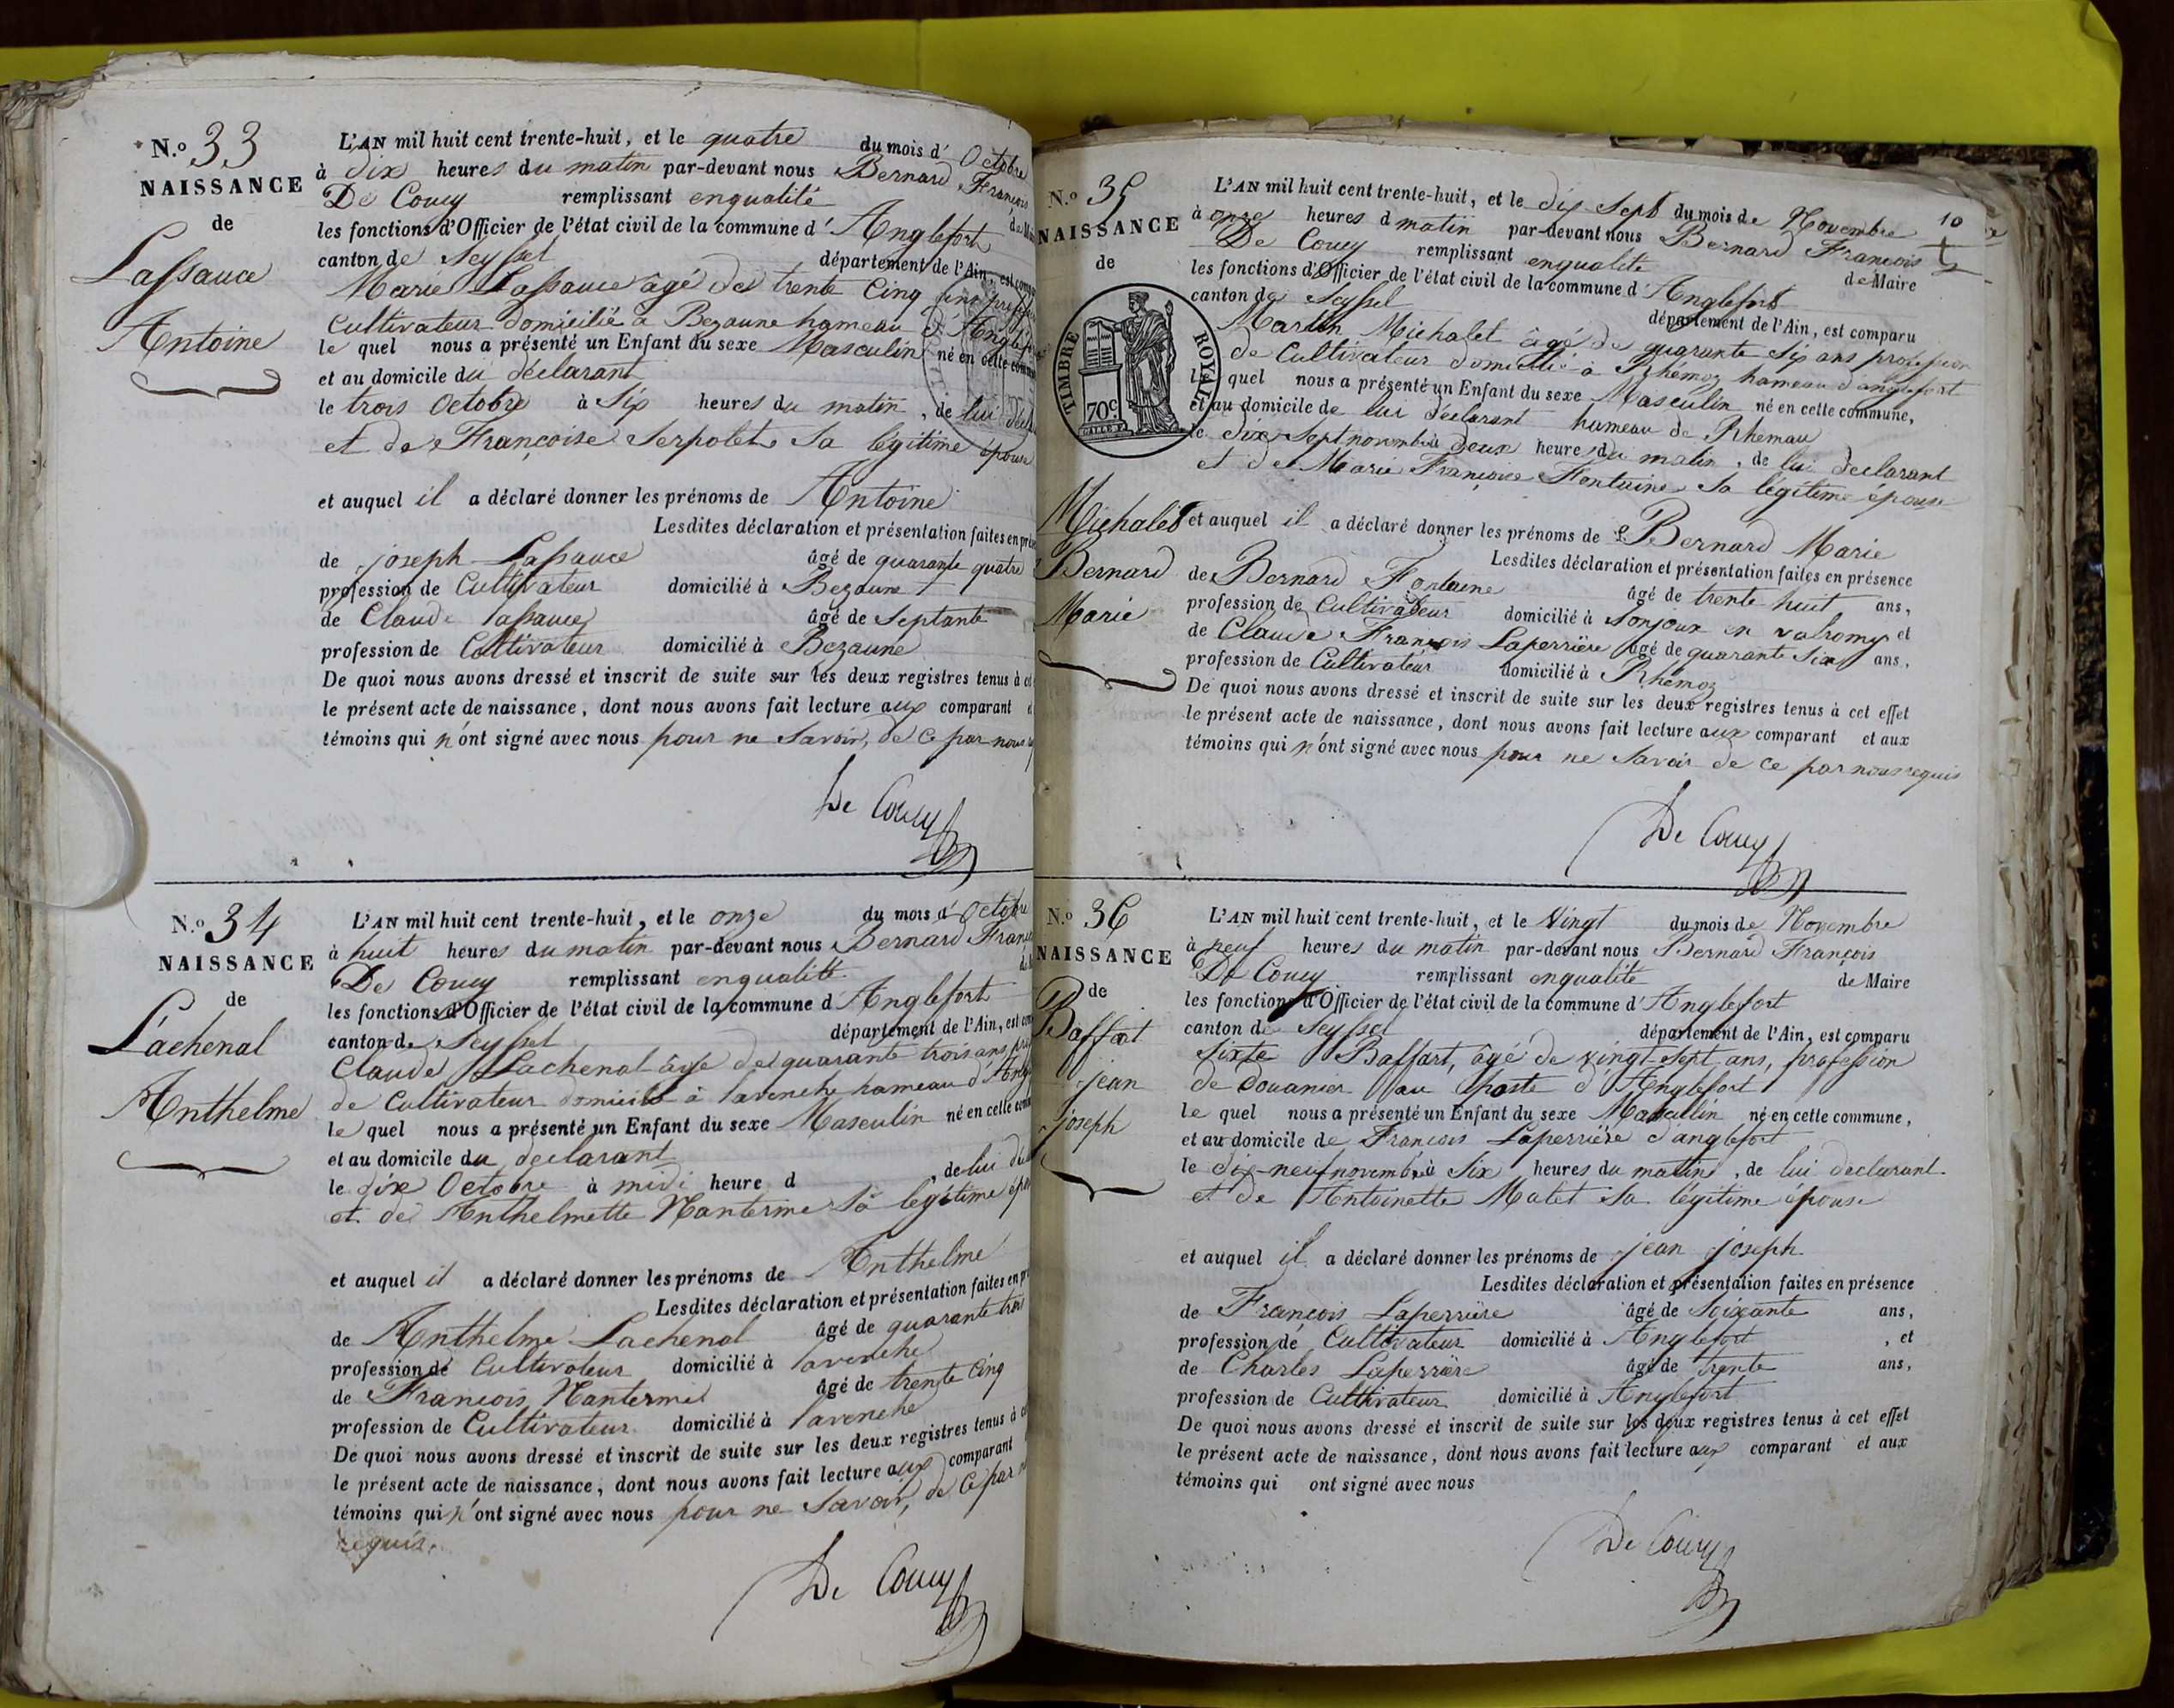 N.º 33
NAISSANCE
de
Lassauce
Antoine
L'AN mil huit cent trente-huit, et le quatre du mois d' Octobre
à dix heures du matin par-devant nous Bernard François
De Coucy remplissant enqualité
les fonctions d'Officier de l'état civil de la commune d' Anglefort
canton de Seyssel département de l'Ain, est
Marie Lassauce âgé de trente Cinq ans
Cultivateur domicilié à Bezaune hameau d'
le quel nous a présenté un Enfant du sexe Masculin né en cette
et au domicile du déclarant
le trois Octobre à Six heures du matin, de lui
et de Françoise Serpolet Sa légitime épouse
et auquel il a déclaré donner les prénoms de Antoine
Lesdites déclaration et présentation faites en
de joseph Lassauce âgé de quarante quatre
profession de Cultivateur domicilié à Bezaune
de Claude lassauce âgé de Septante
profession de Cultivateur domicilié à Bezaune
De quoi nous avons dressé et inscrit de suite sur les deux registres tenus à
le présent acte de naissance, dont nous avons fait lecture aux comparant
témoins qui n'ont signé avec nous pour ne Savoir, de Ce par nous
De Coucy
N.º 34
NAISSANCE
de
Lachenal
Anthelme
L'AN mil huit cent trente-huit, et le onze du mois d' Octobre
à huit heures du matin par-devant nous Bernard
De Coucy remplissant enqualité
les fonctions d'Officier de l'état civil de la commune d' Anglefort
canton de Seyssel département de l'Ain, est
Claude Lachenal âgé de quarante trois ans
de Cultivateur domicilié à lavenche hameau
le quel nous a présenté un Enfant du sexe Masculin né en cette
et au domicile du declarant
le dix Octobre à midi heure d , de lui
et de Anthelmette Nanterme Sa legitime
et auquel il a déclaré donner les prénoms de Anthelme
Lesdites déclaration et présentation faites en
de Anthelme Lachenal âgé de quarante trois
profession de Cultivateur domicilié à lavenche
de François Nanterme âgé de trente Cinq
profession de Cultivateur domicilié à lavenche
De quoi nous avons dressé et inscrit de suite sur les deux registres tenus à
le présent acte de naissance, dont nous avons fait lecture aux comparant
témoins qui n'ont signé avec nous pour ne Savoir, de Ce par
requis.
De Coucy
10
N.º 35
NAISSANCE
de
TIMBRE ROYAL
70 C.
Michalet
Bernard
Marie
L'AN mil huit cent trente-huit, et le dix Sept du mois de Novembre
à onze heures d matin par-devant nous Bernard François
De Coucy remplissant enqualité de Maire
les fonctions d'Officier de l'état civil de la commune d' Anglefort
canton de Seyssel département de l'Ain, est comparu
Martin Michalet âgé de quarante Six ans profession
de Cultivateur domicilié à Rhemoz hameau d'anglefort
le quel nous a présenté un Enfant du sexe Masculin né en cette commune,
et au domicile de lui déclarant hameau de Rhemau
le dix Sept novembre à deux heures du matin, de lui declarant
et de Marie Françoise Fontaine Sa légitime épouse
et auquel il a déclaré donner les prénoms de Bernard Marie
Lesdites déclaration et présentation faites en présence
de Bernard Fontaine âgé de trente huit ans,
profession de Cultivateur domicilié à Sonjoux en valromey et
de Claude François Laperrière âgé de quarante Six ans,
profession de Cultivateur domicilié à Rhémoz
De quoi nous avons dressé et inscrit de suite sur les deux registres tenus à cet effet
le présent acte de naissance, dont nous avons fait lecture aux comparant et aux
témoins qui n'ont signé avec nous pour ne Savoir de ce par nous requis
De Coucy
N.º 36
NAISSANCE
de
Baffart
jean
joseph
L'AN mil huit cent trente-huit, et le Vingt du mois de Novembre
à neuf heures du matin par-devant nous Bernard François
De Coucy remplissant enqualité de Maire
les fonctions d'Officier de l'état civil de la commune d' Anglefort
canton de Seyssel département de l'Ain, est comparu
Sixte Baffart, âgé de vingt Sept ans, profession
de Douanier au poste d'Anglefort
le quel nous a présenté un Enfant du sexe Masculin né en cette commune,
et au domicile de François Laperrière d'anglefort
le dix-neuf novembre à Six heures du matin, de lui declarant
et de Antoinette Malet Sa légitime épouse
et auquel il a déclaré donner les prénoms de jean joseph
Lesdites déclaration et présentation faites en présence
de François Laperrière âgé de Soixante ans,
profession de Cultivateur domicilié à Anglefort , et
de Charles Laperrière âgé de trente ans,
profession de Cultivateur domicilié à Anglefort
De quoi nous avons dressé et inscrit de suite sur les deux registres tenus à cet effet
le présent acte de naissance, dont nous avons fait lecture aux comparant et aux
témoins qui ont signé avec nous
De Coucy